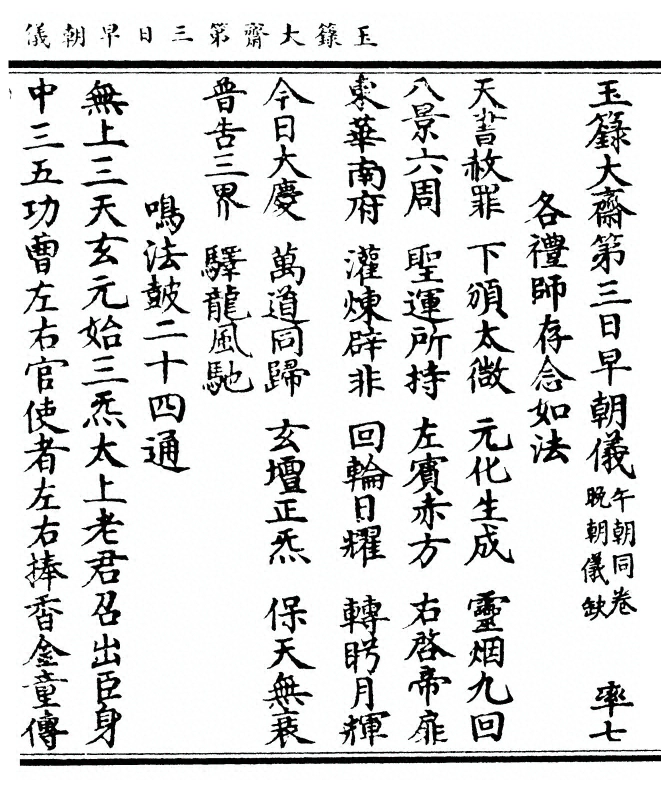 玉籙大齋第三日早朝儀
玉籙大齋第三日早朝儀 午朝同卷晚朝儀缺 率七
各禮師存念如法
天書赦罪 下頒太微 元化生成 靈烟九回
八景六周 聖運所持 左賓赤方 右啓帝扉
東華南府 灌煉辟非 回輪日耀 轉眄月輝
今日大慶 萬道同歸 玄壇正炁 保天無衰
普告三界 驛龍風馳
鳴法鼓二十四通
無上三天玄元始三炁太上老君召出臣身
中三五功曹左右官使者左右捧香金童傳